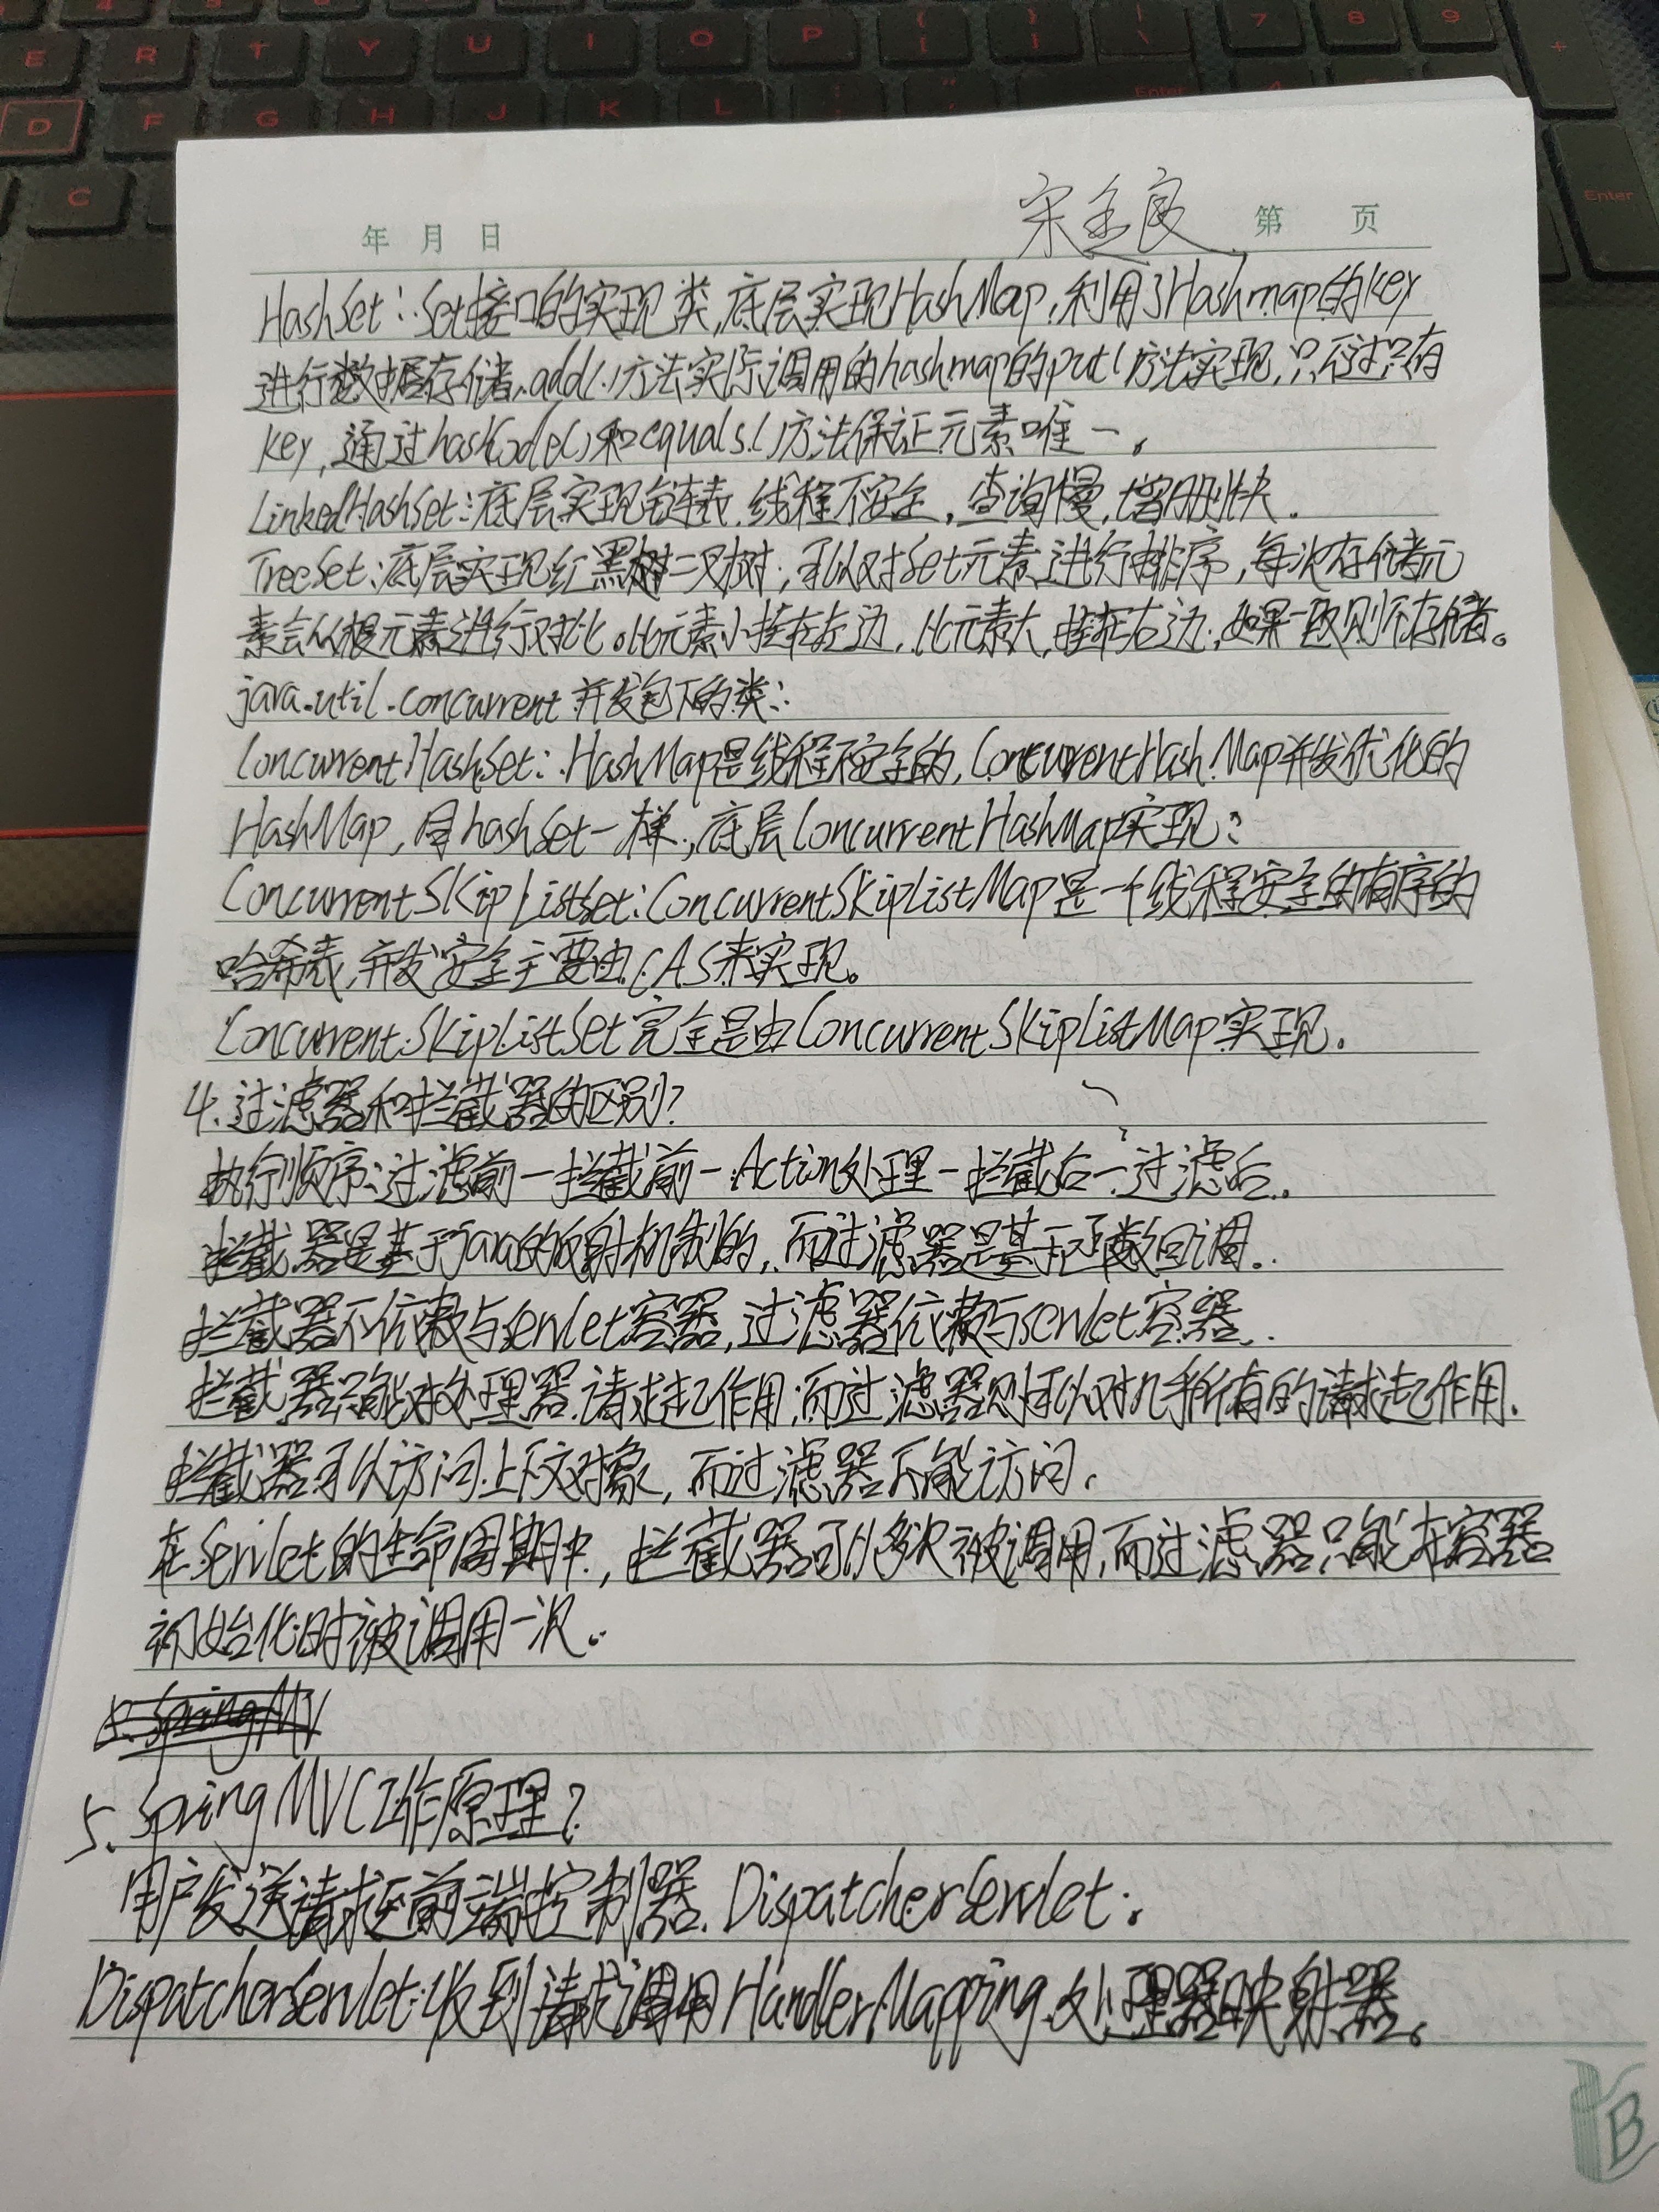 E R T Y U I O P { [ } ] | \ 7 8 9 +
D F G H J K L : ; " ' Enter
C Enter
年 月 日 宋 良 第 页
HashSet：Set接口的实现类，底层实现HashMap，利用了Hashmap的key
进行数据存储，add()方法实际调用的hashmap的put()方法实现，只不过只有
key，通过hashCode()和equals()方法保证元素唯一。
LinkedHashSet：底层实现链表，线程不安全，查询慢，增删快。
TreeSet：底层实现红黑树二叉树，可以对Set元素进行排序，每次存储元
素会从根元素进行对比。比元素小挂在左边，比元素大，挂在右边，如果一致则不存储。
java.util.concurrent并发包下的类：
ConcurrentHashSet：HashMap是线程不安全的，ConcurrentHashMap并发优化的
HashMap，同hashSet一样，底层ConcurrentHashMap实现；
ConcurrentSkipListSet：ConcurrentSkipListMap是一个线程安全的有序的
哈希表，并发安全主要由CAS来实现。
ConcurrentSkipListSet完全是由ConcurrentSkipListMap实现。
4.过滤器和拦截器的区别？
执行顺序：过滤前－拦截前－Action处理－拦截后－过滤后。
拦截器是基于java的反射机制的，而过滤器是基于函数回调。
拦截器不依赖与servlet容器，过滤器依赖与servlet容器。
拦截器只能对处理器请求起作用，而过滤器则可以对几乎所有的请求起作用。
拦截器可以访问上下文对象，而过滤器不能访问。
在Servlet的生命周期中，拦截器可以多次被调用，而过滤器只能在容器
初始化时被调用一次。
SpringMV
5.SpringMVC工作原理？
用户发送请求至前端控制器DispatcherServlet；
DispatcherServlet收到请求调用HandlerMapping处理器映射器。
B